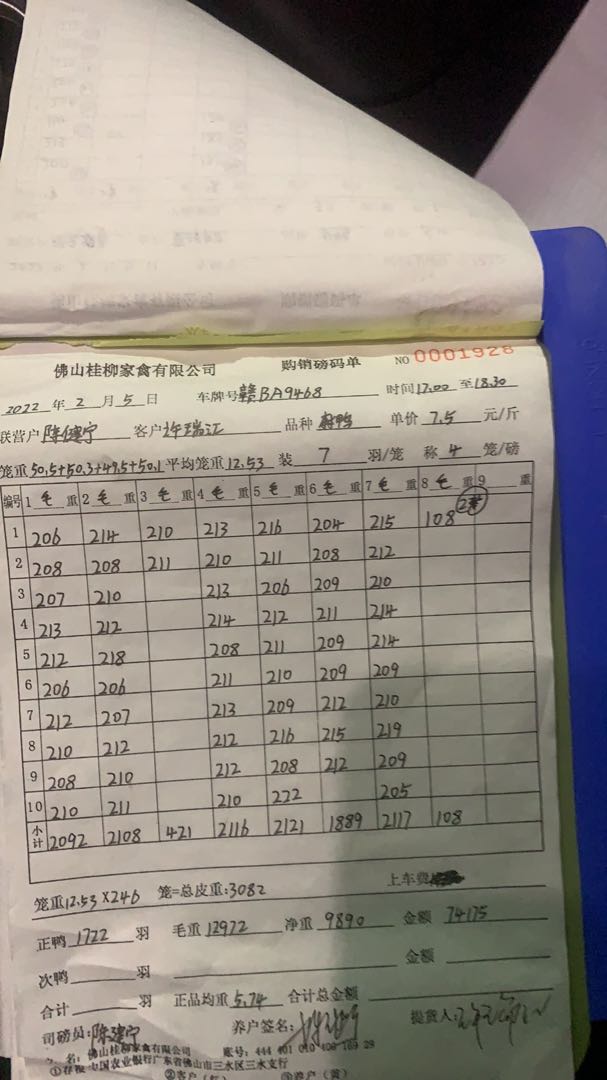 佛山桂柳家禽有限公司 购销磅码单 NO 0001928
2022 年 2 月 5 日 车牌号 赣BA9468 时间 17.00 至 18.30
联营户 陈健宁 客户 许瑞江 品种 单价 7.5 元/斤
笼重 50.5+50.3+49.5+50.1 平均笼重 12.53 装 7 羽/笼 称 4 笼/磅
编号 1 毛 重 2 毛 重 3 毛 重 4 毛 重 5 毛 重 6 毛 重 7 毛 重 8 毛 重 9 重
1 206 214 210 213 216 204 215 108
2 208 208 211 210 211 208 212
3 207 210 213 206 209 210
4 213 212 214 212 211 214
5 212 218 208 211 209 214
6 206 206 211 210 209 209
7 212 207 213 209 212 210
8 210 212 212 216 215 219
9 208 210 212 208 212 209
10 210 211 210 222 205
小计 2092 2108 421 2116 2121 1889 2117 108
笼重 12.53×246 笼=总皮重:3082 上车费
正鸭 1722 羽 毛重 12972 净重 9890 金额 74175
次鸭 羽 金额
合计 羽 正品均重 5.74 合计总金额
司磅员: 陈健宁 养户签名: 提货人:
名: 佛山桂柳家禽有限公司 账号: 444 401 010 400 169 28
中国农业银行广东省佛山市三水区三水支行
①存根 ②客户(红) ③养户(黄)